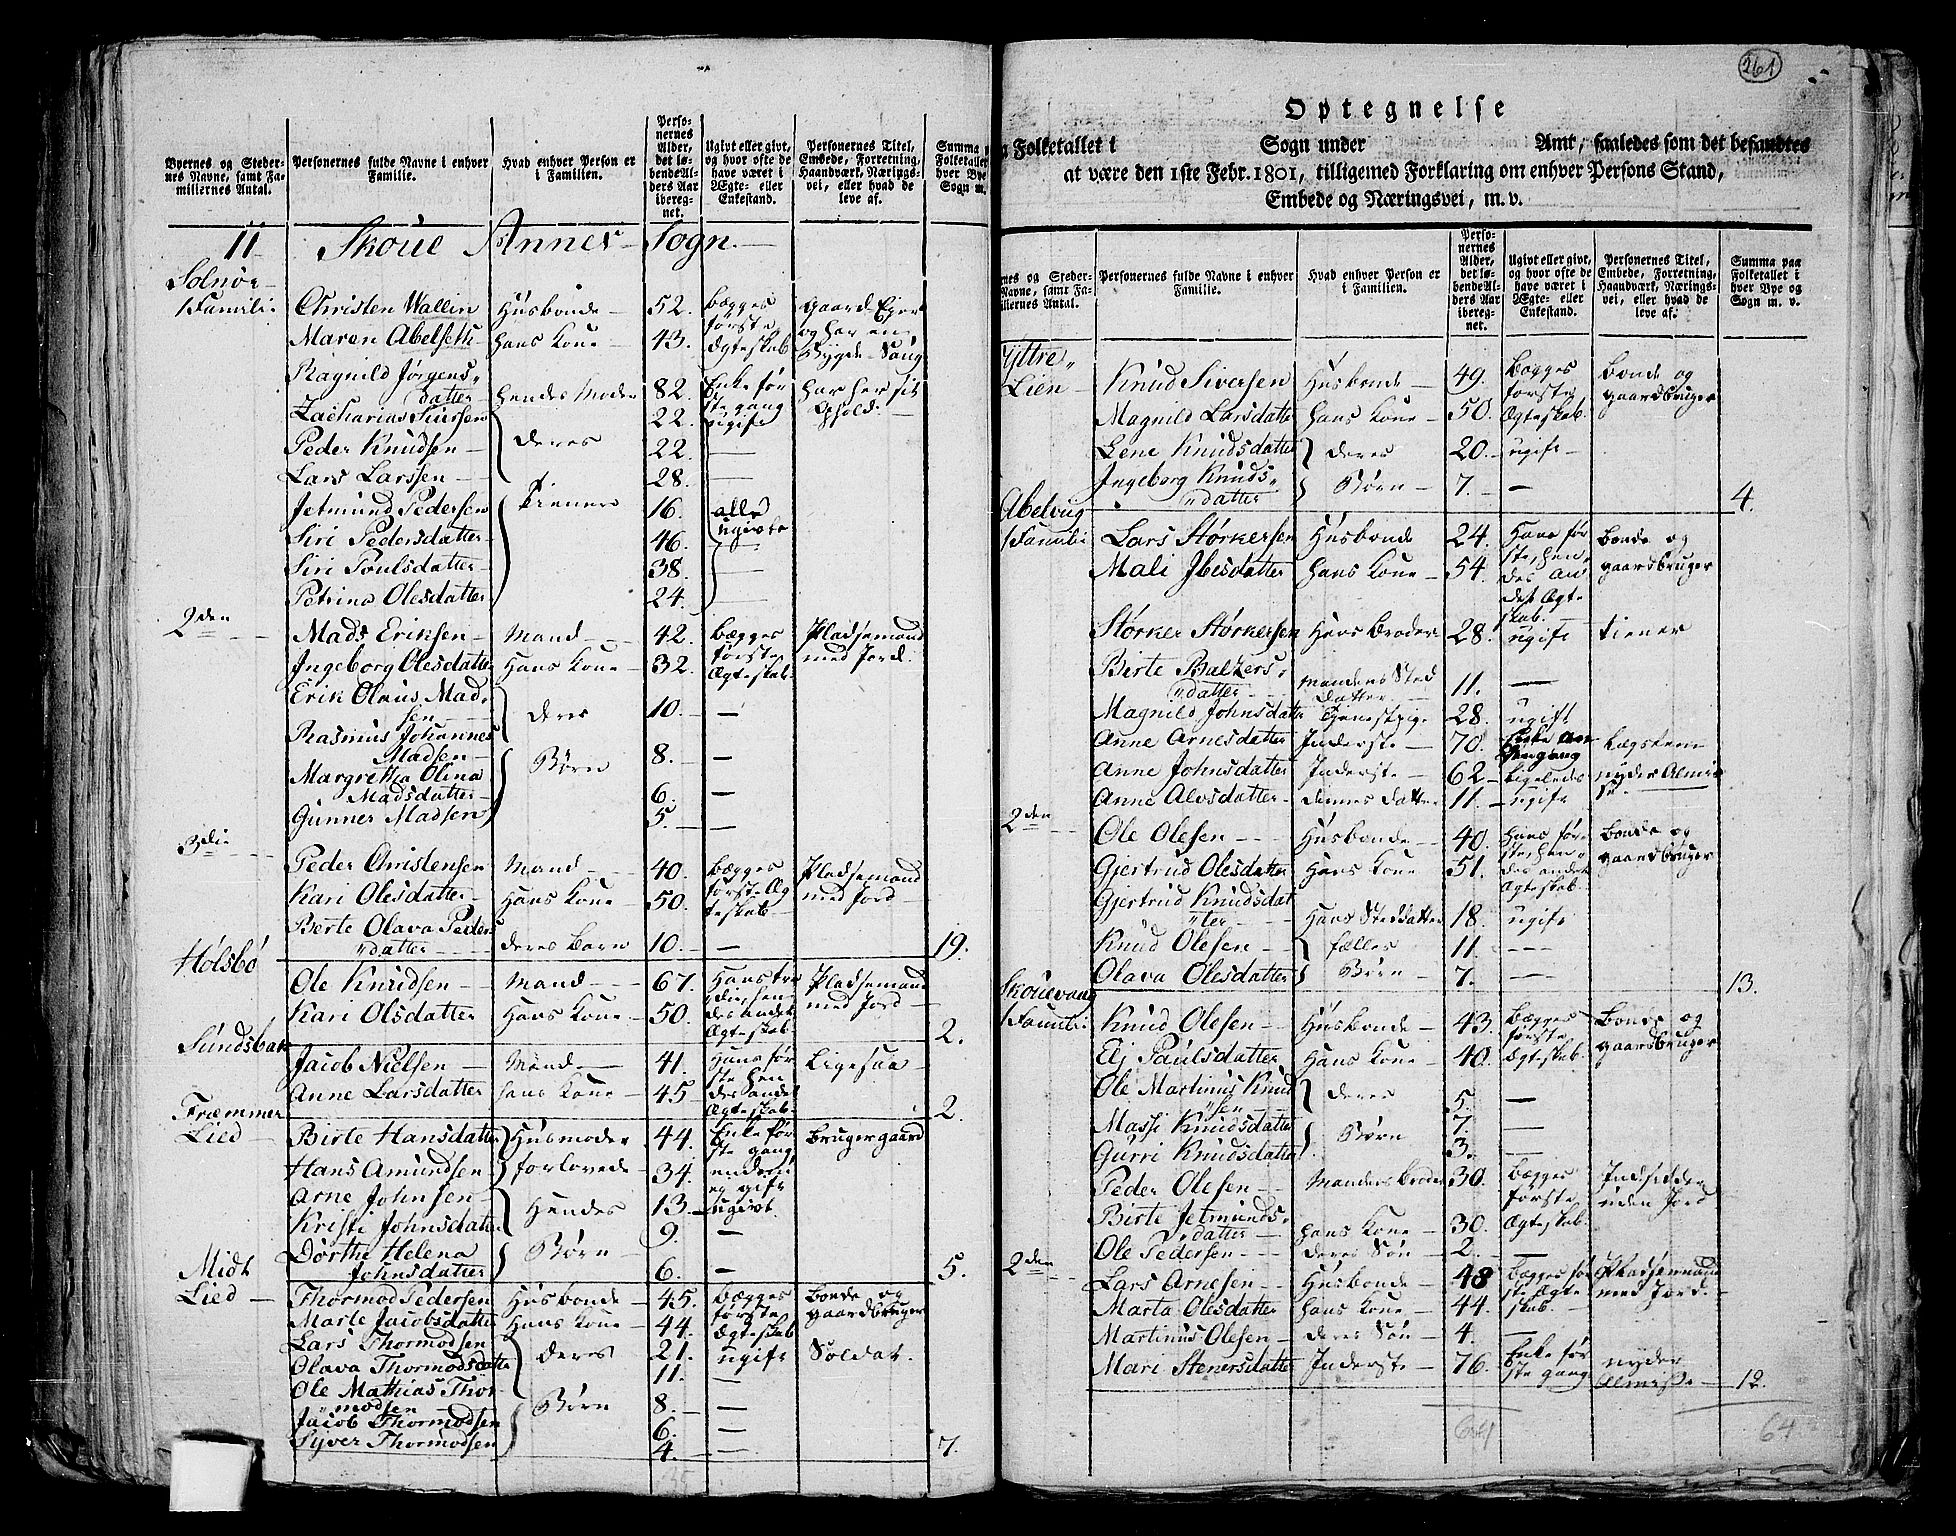 261
Optegnelse
Folketallet i Sogn under Amt, saaledes som det befandtes
at være den 1ste Febr. 1801, tilligemed Forklaring om enhver Persons Stand,
Embede og Næringsvei, m. v.
Byernes og Stedernes Navne, samt Familiernes Antal.
Personernes fulde Navne i enhver Familie.
Hvad enhver Person er i Familien.
Personernes Alder, det løbende Alders Aar iberegnet.
Ugivt eller givt, og hvor ofte de have været i Ægte- eller Enkestand.
Personernes Titel, Embede, Forretning, Haandværk, Næringsvei, eller hvad de leve af.
Summa Folketallet hver Bye Sogn m.
11 Skoue Annex Sogn.
Solnør
1 Famili
Christen Wallin Husbonde 52. begges første Ægteskab gaard Eier og har en Bygde-Saug
Maren Abelseth hans Kone 43.
Ragnild Jørgensdatter hendes Moder 82. Enke første gang har her sit Ophold
Zacharias Siursen 22. ugift
Peder Knudsen deres 22. —
Lars Larssen 28. —
Jetmund Pedersen tienere 16. alle ugivte
Siri Pedersdatter 46.
Siri Poulsdatter 38.
Petrina Olesdatter 24.
2den
Mads Eriksen Mand 42. begges første Ægteskab Pladsemand med Jord.
Ingeborg Olesdatter Hans Kone 32.
Erik Olaus Madsen deres 10. —
Rasmus Johannes Madsen Børn 8. —
Margretha Olina Madsdatter 6. —
Gunner Madsen 5. —
3die
Peder Christensen Mand 40. begges første Ægteskab Pladsemand med Jord
Kari Olesdatter Hans Kone 50.
Berte Olava Pedersdatter deres Barn 10. — 19.
Hølsbø
Ole Knudsen Mand 67. Hans tredie hendes andet Ægteskab Pladsemand med Jord
Kari Olsdatter Hans Kone 50. 2.
Sundsbak
Jacob Nielsen Mand 41. Hans første hendes andet Ægteskab Ligesaa
Anne Larsdatter hans Kone 45 2.
Fræmmer Lied
Birte Hansdatter Husmoder 44. Enke første gang bruger gaard
Hans Amundsen forlovede 34. ey gift
Arne Johnsen Hendes 13. ugivt.
Kristi Johnsdatter 9. —
Dorthe Helena Johnsdatter Børn 6. — 5.
Midt Lied
Thormod Pedersen Husbonde 45. begges første Ægteskab Bonde og gaardbruger
Marte Jacobsdatter Hans Kone 44.
Lars Thormodsen deres 21. ugift Soldat.
Olava Thormodsdatter 11. —
Ole Mathias Thormodsen Børn 8. —
Jacob Thormodsen 6. —
Syver Thormodsen 4. — 7.
35
Personernes fulde Navne i enhver Familie.
Hvad enhver Person er i Familien.
Personernes Alder, det løbende Alders Aar iberegnet.
Ugivt eller givt, og hvor ofte de have været i Ægte- eller Enkestand.
Personernes Titel, Embede, Forretning, Haandværk, Næringsvei, eller hvad de leve af.
Summa paa Folketallet i hver Bye og Sogn m. v.
Yttre Lien
Knud Siversen Husbonde 49. begges første Ægteskab. bonde og gaardsbruger
Magnild Larsdatter hans Kone 50.
Lene Knudsdatter deres 20. ugift
Ingeborg Knudsdatter Børn 7. — 4.
Abelvug
1 Famili
Lars Størkersen Husbonde 24. Hans første, hendes andet Ægteskab. bonde og gaardsbruger
Mali Ibesdatter hans Kone 54.
Størker Størkersen Hans Broder 28. ugift tiener
Birte Baltzersdatter Mandens Steddatter 11. —
Magnild Johnsdatter tjenestpige 28. ugift
Anne Arnesdatter Inderste 70.
Anne Johnsdatter Inderste 62 ligeledes nyder Almisse
Anne Alvsdatter dennes datter 11. ugift
2den
Ole Olesen Husbonde 40. hans første, hendes andet Ægteskab. bonde og gaardsbruger
Gjertrud Olesdatter Hans Kone 51.
Gjertrud Knudsdatter Hans Steddatter 18. ugift
Knud Olesen fælles 11. —
Olava Olesdatter Børn 7. — 13.
Skouevang
1 Famili
Knud Olesen Husbonde 43. begges første Ægteskab. Bonde og gaardsbruger
Elj Paulsdatter Hans Kone 40.
Ole Martinus Knudsen deres 5. —
Massi Knudsdatter Børn 7. —
Gurri Knudsdatter 3. —
Peder Olesen Mandens Broder 30. begges første Ægteskab. Indsidder uden Jord
Birte Jetmundsdatter hans Kone 30.
Ole Pedersen deres Søn 2. —
2den
Lars Arnesen Husbonde 48 begges første Ægteskab. Pladsemand med Jord
Marta Olesdatter hans Kone 44.
Martinus Olesen deres Søn 4. —
Mari Stenersdatter Inderste 76. Enke første gang nyder Almisse 12.
64 64